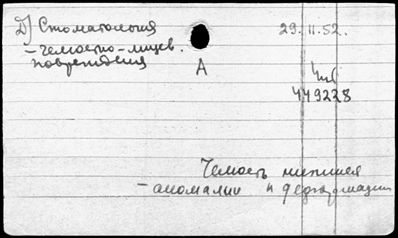 Д) Стоматология
29.11.52.
- Челюстно-лицев.
повреждения
А
449228
Челюсть нижняя
- аномалии и деформации